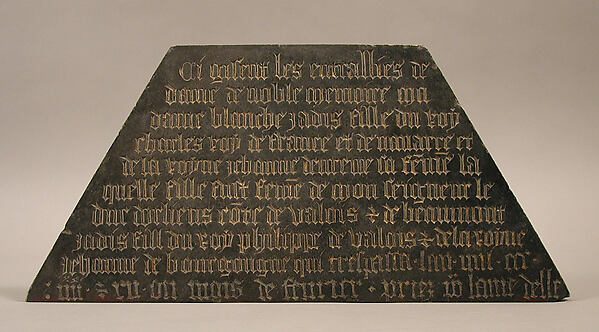 Ci gisent les entrailles de
dame de noble memoire ma
dame blanche jadis fille du roy
charles roy de france et de navarre et
de la royne jehanne deureux sa feme la
quelle fille fust feme de mon seigneur le
duc dorliens cote de valois & de beaumont
jadis fill du roy philippe de valois & de la royne
jehanne de bourgongne qui trespassa lan mil
mois de fevrier priez pour lame delle